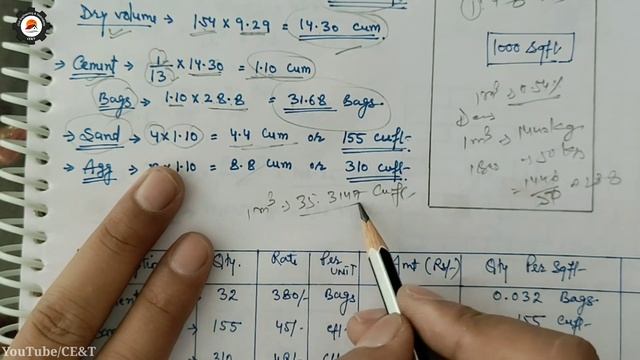 Dry volume → 1.54 x 9.29 = 14.30 cum
→ Cement → 1/13 x 14.30 = 1.10 cum
Bags → 1.10 x 28.8 = 31.68 Bags
→ Sand → 4 x 1.10 = 4.4 cum or 155 cuft
→ Agg → x 1.10 = 8.8 cum or 310 cuft
1m³ → 35.3147 cuft
1000 Sqft
1m³ →
1m³ → 1440 kg
50
Qty. Rate Per UNIT Amt (Rs/-) Qty Per Sqft
32 380/- Bags 0.032 Bags
155 45/- cft 155 cuft
310 48/-
YouTube/CE&T